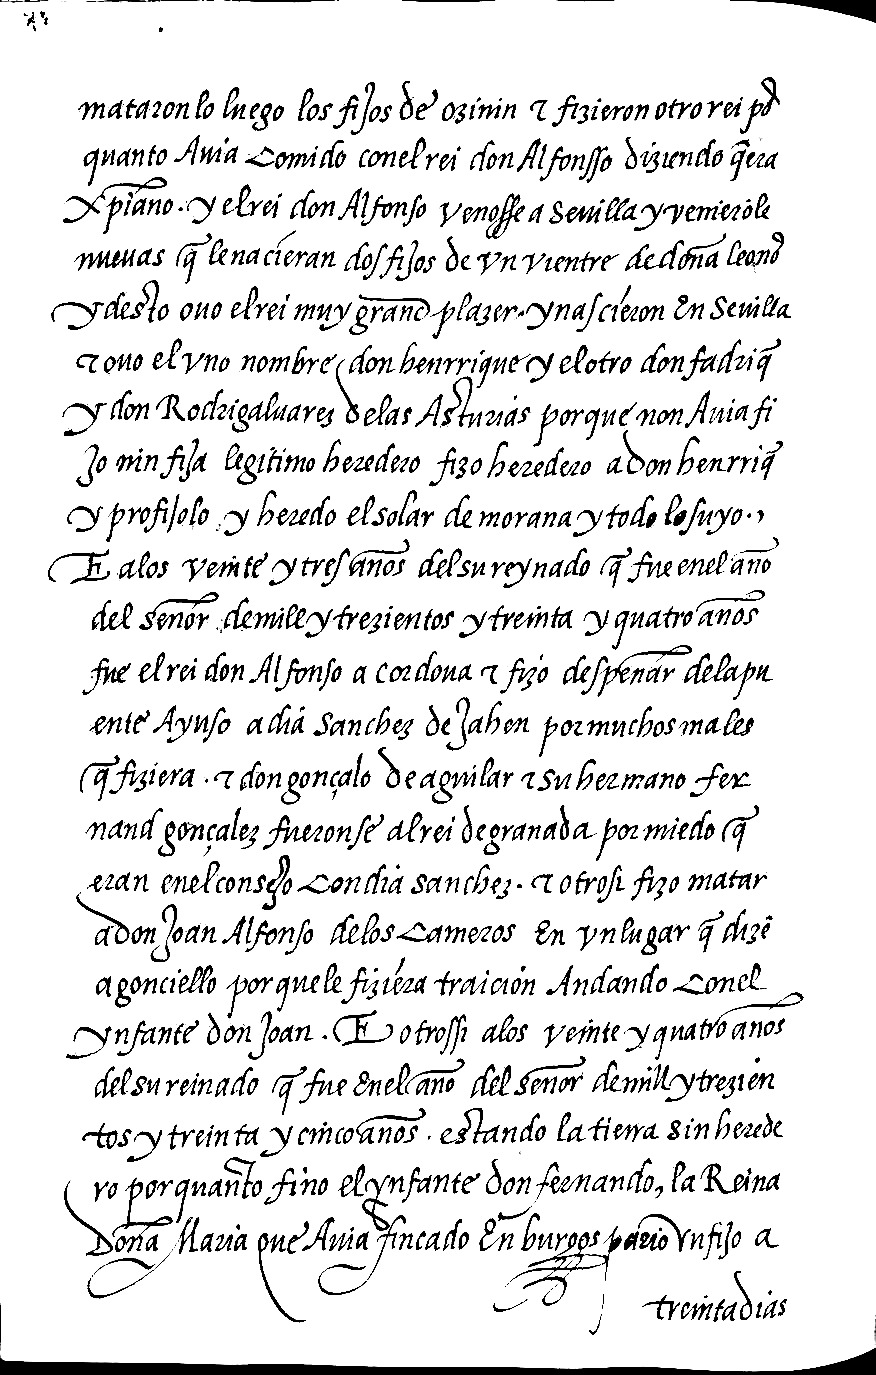 mataron lo luego los fijos de ozinin τ fizieron otro rei por
quanto Auia comido con el rei don Alfonsso diziendo q̃ era
Xp̃iano. y el rei don Alfonso venosse a Seuilla y venierõle
nueuas q̃ le nacieran dos fijos de vn vientre de doña leonor
y desto ouo el rei muy grand plazer. y nascieron En Seuilla
τ ouo el vno nombre don henrrique y el otro don fadriq̃
y don Rodrigaluarez de las Asturias porque non Auia fi
jo nin fija legitimo heredero fizo heredero a don henrriq̃
y profijolo y heredo el solar de morana y todo lo suyo.
E a los veinte y tres años del su reynado q̃ fue en el año
del señor de mill y trezientos y treinta y quatro años
fue el rei don Alfonso a cordoua τ fizo despeñar de la pu
ente Ayuso a dia Sanchez de Jahen por muchos males
q̃ fiziera. τ don gonçalo de aguilar τ su hermano fer
nand gonçalez fueronse al rei de granada por miedo q̃
eran en el consejo con dia sanchez. τ otrosi fizo matar
a don Joan Alfonso de los Cameros En vn lugar q̃ dizẽ
agonciello por que le fiziera traición Andando Con el
ynfante don Joan. E otrossi a los veinte y quatro años
del su reinado q̃ fue En el año del señor de mill y trezien
tos y treinta y cinco años. estando la tierra sin herede
ro por quanto fino el ynfante don fernando, la Reina
Doña Maria que Auia fincado En burgos pario vn fijo a
treinta dias